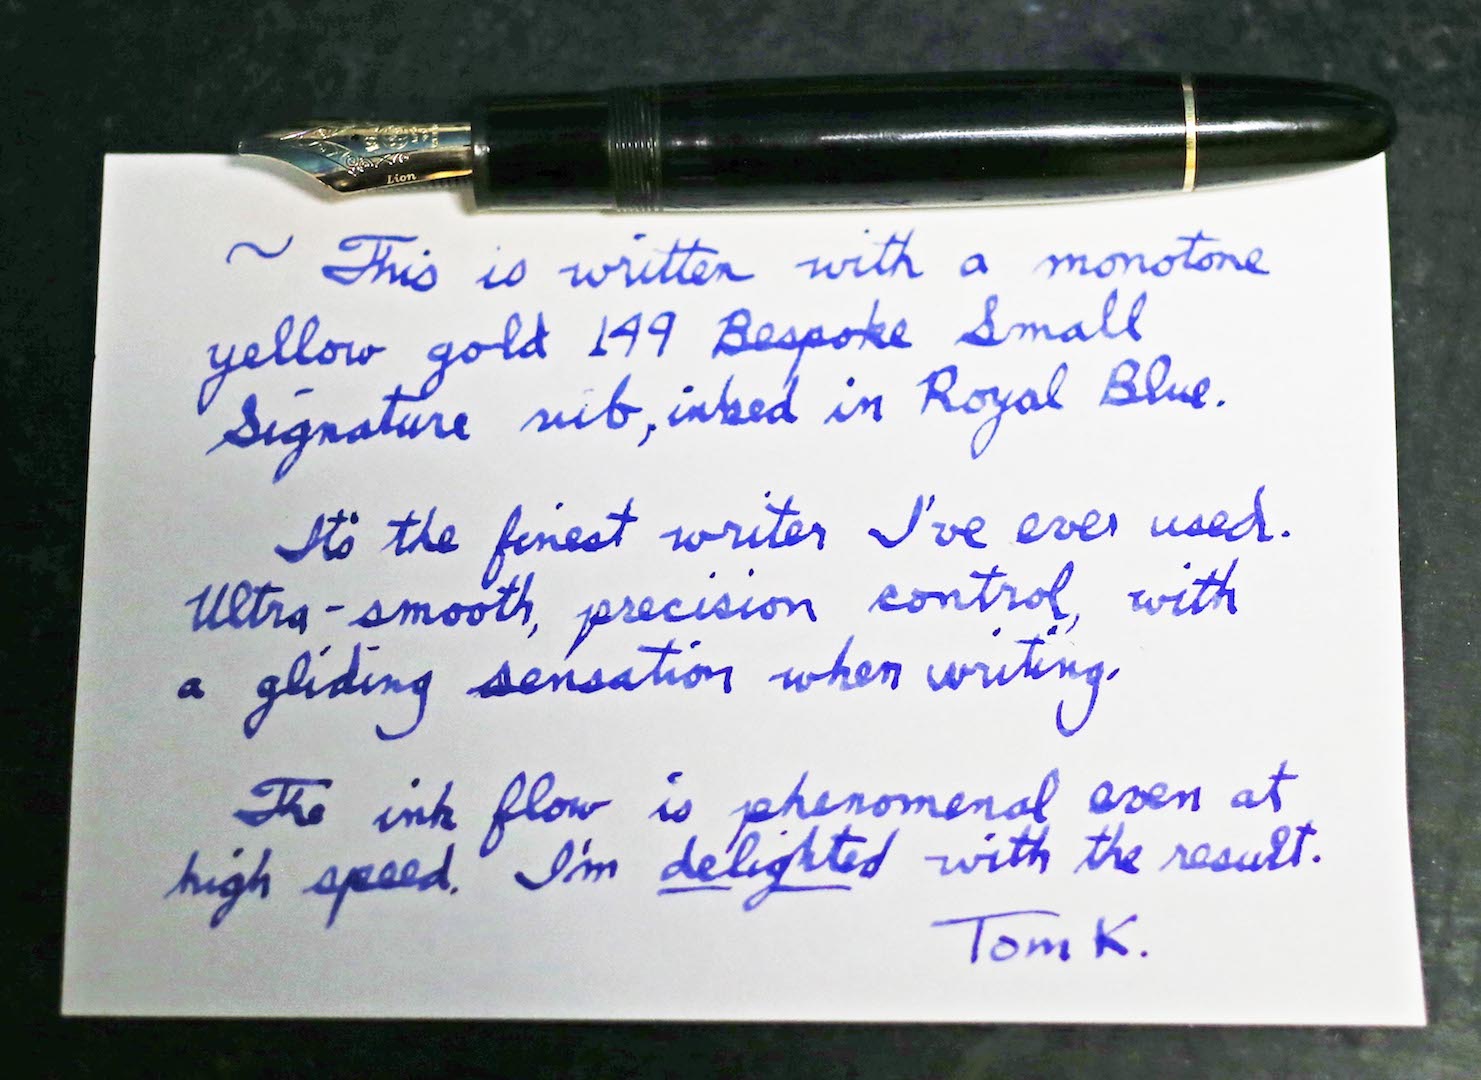 Lion
~ This is written with a monotone
yellow gold 149 Bespoke Small
Signature nib, inked in Royal Blue.
It's the finest writer I've ever used.
Ultra-smooth, precision control, with
a gliding sensation when writing.
The ink flow is phenomenal even at
high speed. I'm delighted with the result.
Tom K.